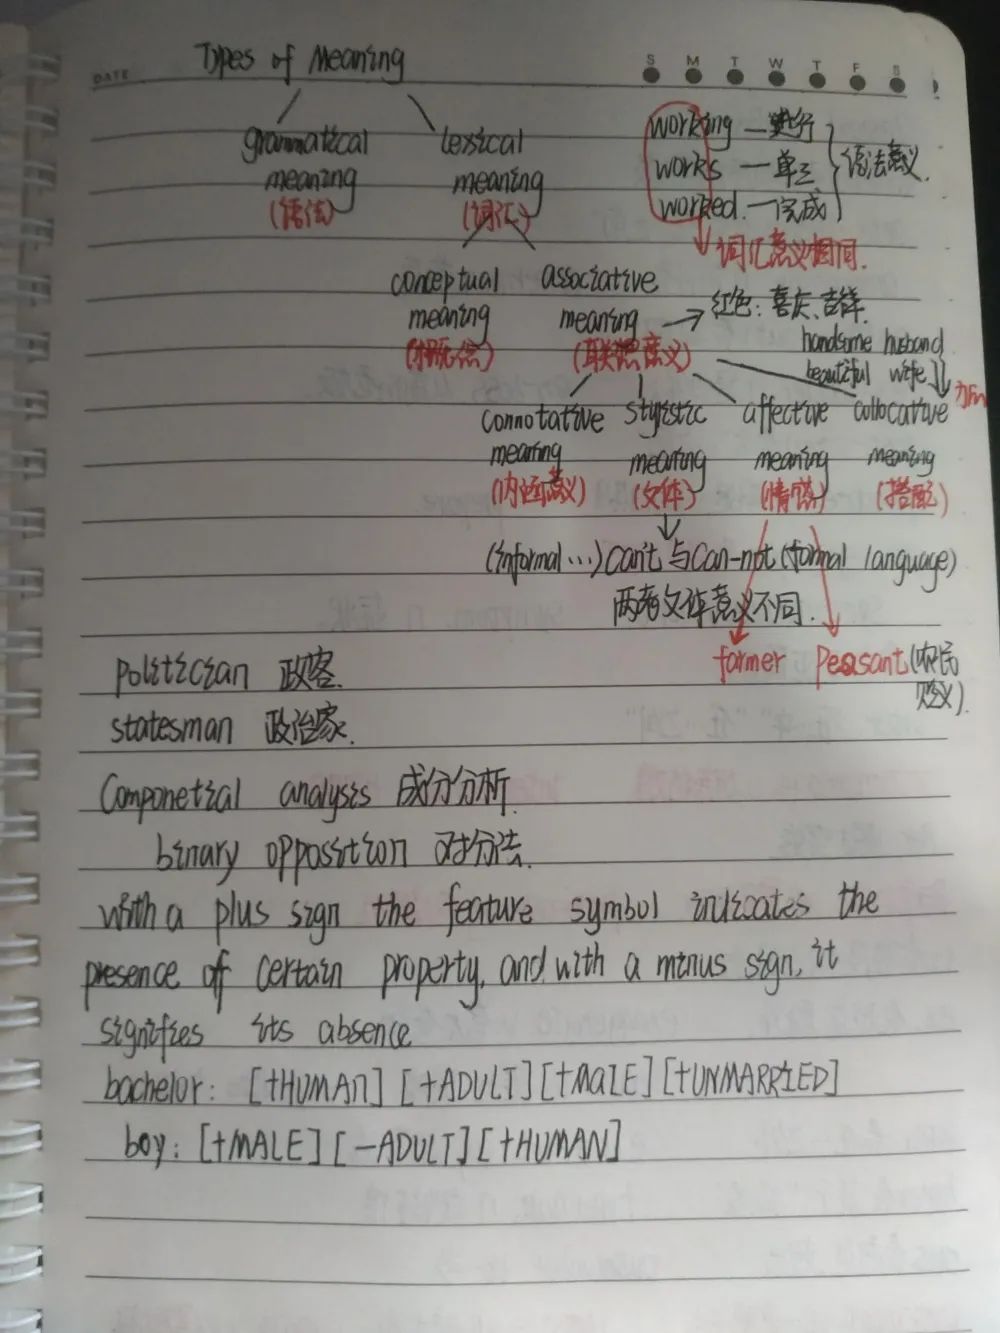 DATE
S M T W T F S
Types of Meaning
grammatical lexical
meaning meaning
(语法) (词汇)
working —进行
works —单三
worked. —完成
语法意义.
词汇意义相同.
conceptual associative
meaning meaning
(联想意义)
红色: 喜庆、吉祥.
handsome husband
beautiful wife
connotative stylistic affective collocative
meaning meaning meaning meaning
(内涵意义) (文体) (情感) (搭配)
(informal ...) can't 与 can-not (formal language)
两者文体意义不同.
farmer peasant (农民
贬义).
politician 政客.
statesman 政治家.
Componetial analysis 成分分析.
binary opposition 对分法.
with a plus sign the feature symbol indicates the
presence of certain property, and with a minus sign, it
signifies its absence
bachelor: [+HUMAN] [+ADULT] [+MALE] [+UNMARRIED]
boy: [+MALE] [-ADULT] [+HUMAN]